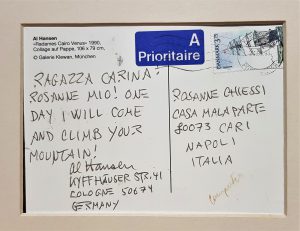 Al Hansen
«Madames Cairo Venus» 1990,
Collage auf Pappe, 106 x 79 cm,
© Galerie Klewan, München
A
Prioritaire
RAGAZZA CARINA!
ROSANNE MIO! ONE
DAY I WILL COME
AND CLIMB YOUR
MOUNTAIN!
Al Hansen
KYFFHÄUSER STR. 41
COLOGNE 50674
GERMANY
ROSANNE CHIESSI
CASA MALAPARTE
80073 CAPRI
NAPOLI
ITALIA